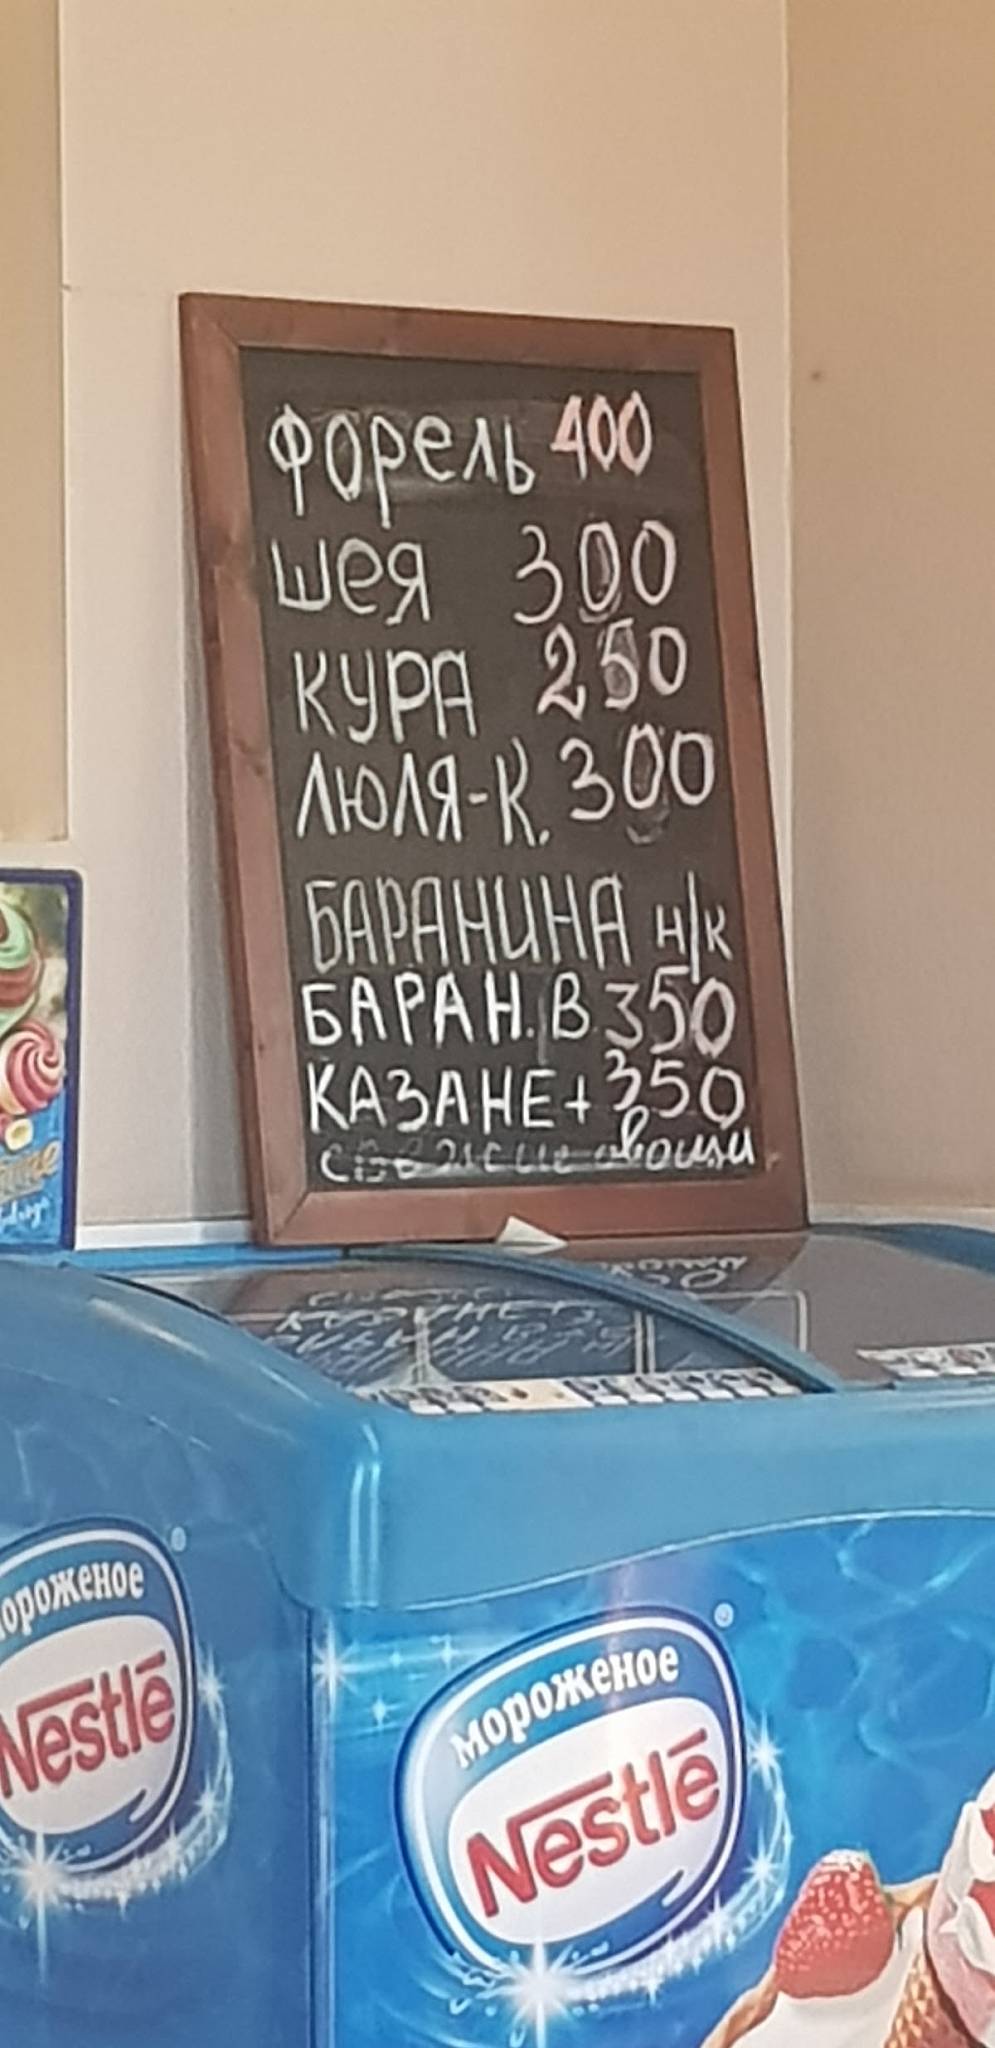 форель 400
шея 300
КУРА 250
ЛЮЛЯ-К. 300
БАРАНИНА н/к
БАРАН. В 350
КАЗАНЕ + 350
свежие овощи
мороженое
Nestlé
мороженое
Nestlé